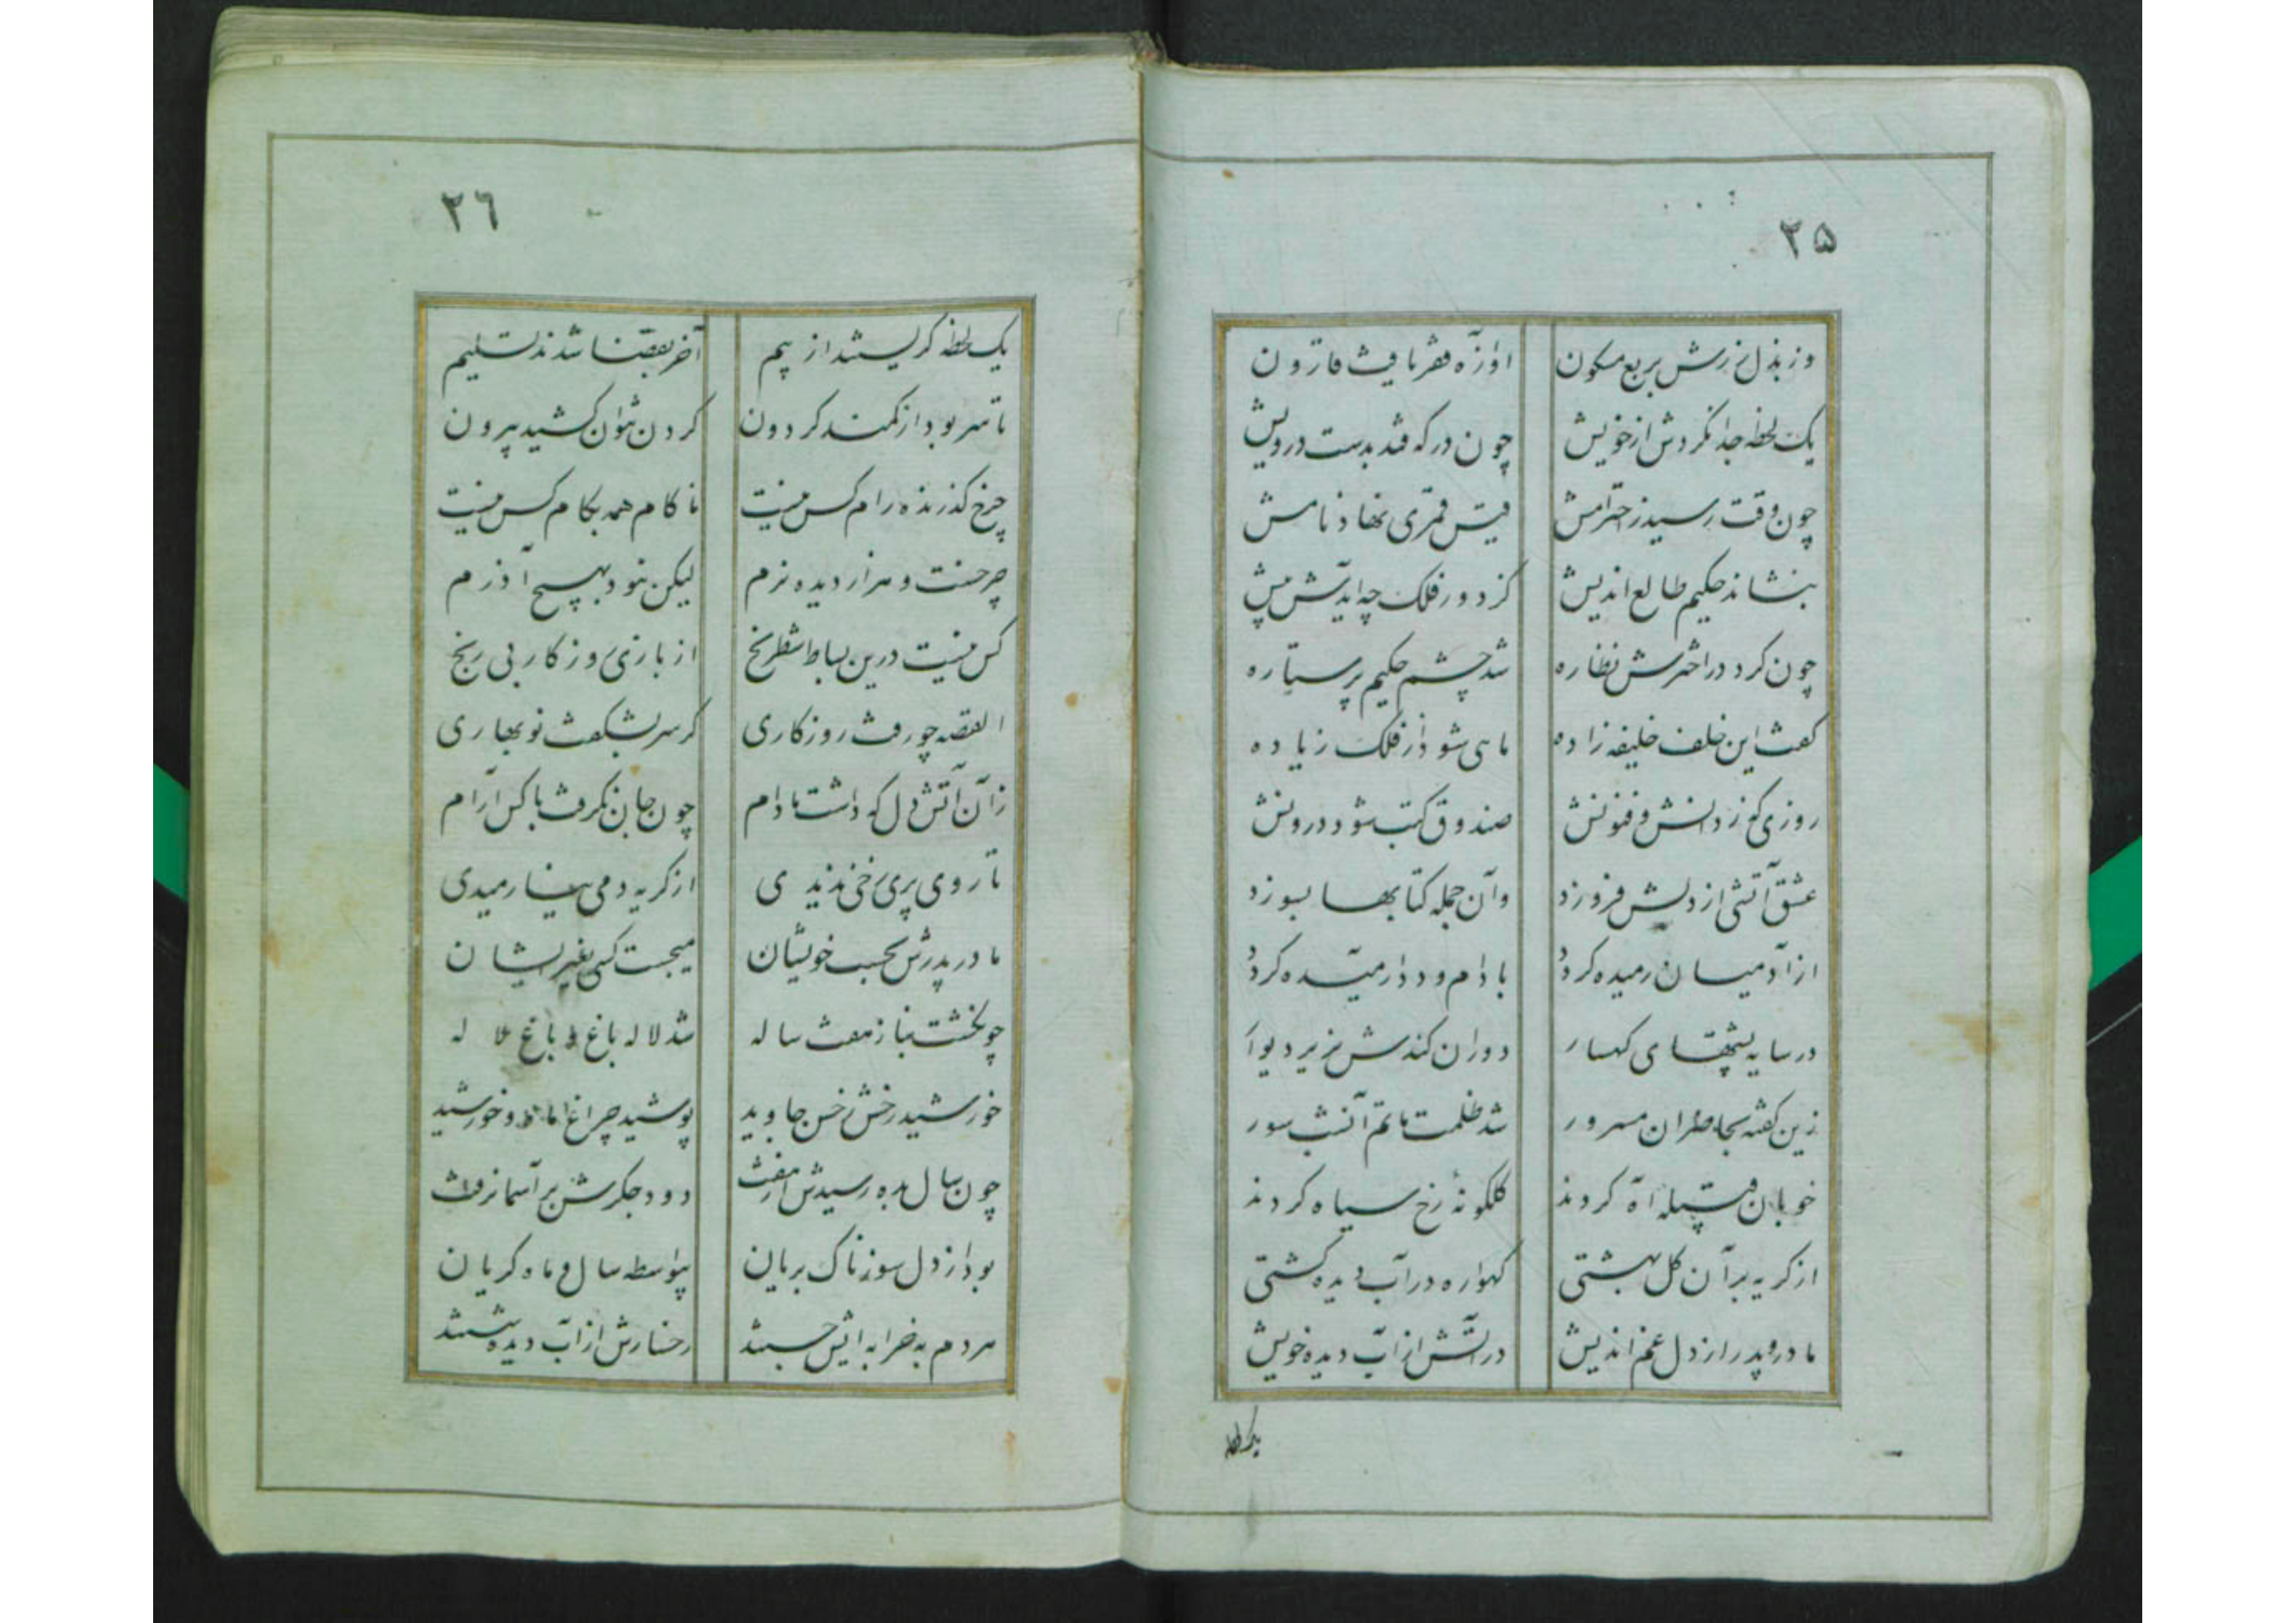 ۲۵
وز بذل زرش بربع مسکون
اوازه فقر یافت قارون
یک لحظه جدا نکردش از خویش
چون در که فتد بدست درویش
چون وقت رسید ز احترامش
قیس قمری نهاد نامش
بنشاند حکیم طالع اندیش
کز دور فلک چه ایدش پیش
چون کرد در اخترش نظاره
شد چشم حکیم پر ستاره
کفت این خلف خلیفه زاده
ماهی شود از فلک زیاده
روزی که ز دانش و فنونش
صندوق کتب شود درونش
عشق آتشی از دلش فروزد
وآن جمله کتابها بسوزد
از آدمیان رمیده کردد
با دام و دد ارمیده کردد
در سایه پشتهای کهسار
دوران کندش نزیر دیوار
زین کفته بخاطران مسرور
شد ظلمت ماتم آنشب سور
خوبان قبیله آه کردند
کلکونه رخ سیاه کردند
از کریه بر آن کل بهشتی
کهواره در آب دیده کشتی
مادر و پدر از دل غم اندیش
در آتش از آب دیده خویش
یک لحظه
۲٦
یک لحظه کریستند از بیم
آخر بقضا شدند تسلیم
تا سر بود از کمند کردون
کردن نتوان کشید بیرون
چرخ کذرنده رام کس نیست
ناکام همه بکام کس نیست
چرخست و هزار دیده نرم
لیکن نبود بهیچ آذرم
کس نیست درین بساط شطرنج
از بازی روزکار بی رنج
القصه چو رفت روزکاری
کز سر بشکفت نوبهاری
زآن آتش دل که داشت مادام
چون جان نکرفت با کس آرام
تا روی پری رخی ندیدی
از کریه دمی نیارمیدی
مادر پدرش بحسب خویشان
میجست کسی بغیر ایشان
چو کشت بناز هفت ساله
شد لاله باغ و باغ لاله
خورشید رخش ز حسن جاوید
پوشید چراغ ماه و خورشید
چون سال بده رسیدش از هفت
دود جکرش بر آسمان رفت
بود از دل سوزناک بریان
بیواسطه سال و ماه کریان
هر دم به خرابه ایش جستند
رخسارش از آب دیده شستند